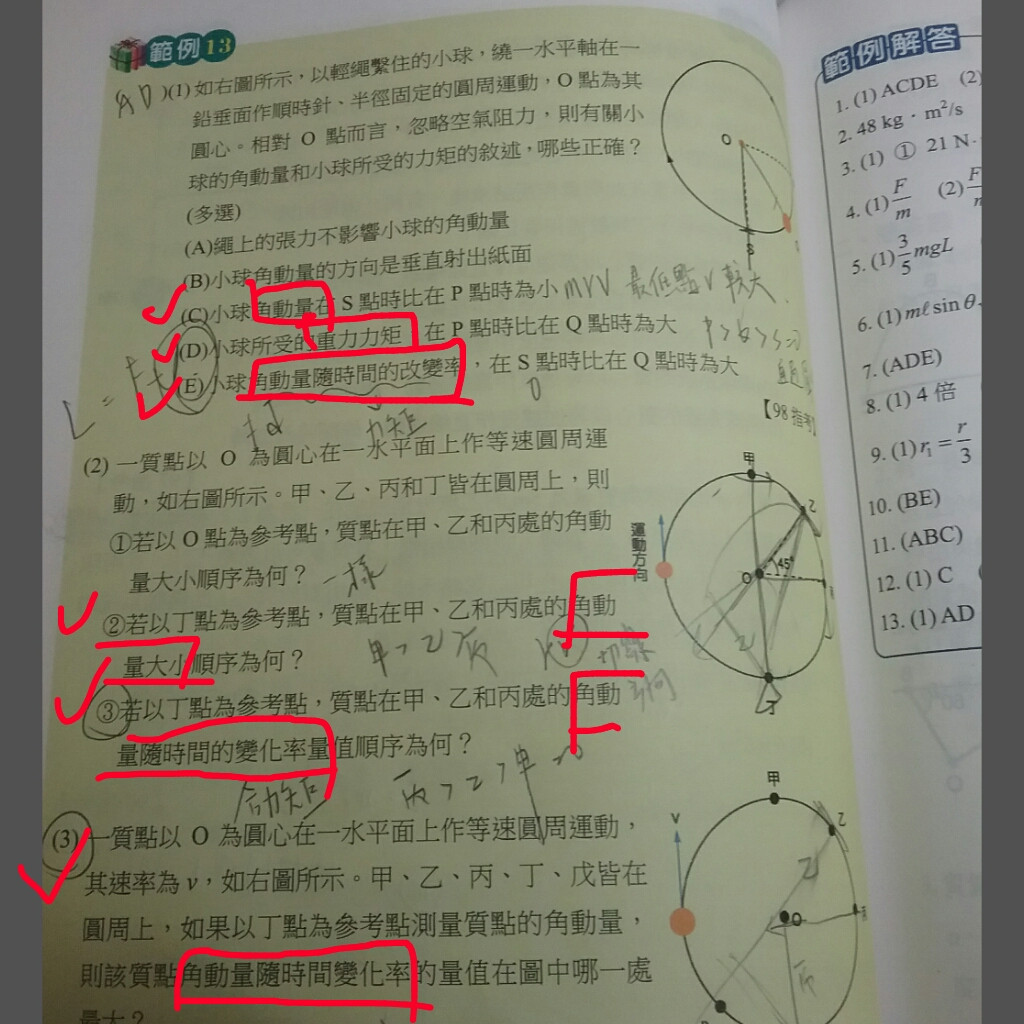 範例13
AD )(1) 如右圖所示，以輕繩繫住的小球，繞一水平軸在一
鉛垂面作順時針、半徑固定的圓周運動，O 點為其
圓心。相對 O 點而言，忽略空氣阻力，則有關小
球的角動量和小球所受的力矩的敘述，哪些正確？
(多選)
(A)繩上的張力不影響小球的角動量
(B)小球角動量的方向是垂直射出紙面
(C)小球角動量在 S 點時比在 P 點時為小 mrv 最低點 v 較大
(D)小球所受的重力力矩，在 P 點時比在 Q 點時為大
(E)小球角動量隨時間的改變率，在 S 點時比在 Q 點時為大
0
力矩
【98 指考】
O
S
(2) 一質點以 O 為圓心在一水平面上作等速圓周運
動，如右圖所示。甲、乙、丙和丁皆在圓周上，則
①若以 O 點為參考點，質點在甲、乙和丙處的角動
量大小順序為何？ 一樣
②若以丁點為參考點，質點在甲、乙和丙處的角動
量大小順序為何？ 甲>乙
③若以丁點為參考點，質點在甲、乙和丙處的角動
量隨時間的變化率量值順序為何？
合力矩 丙>乙>甲=0
甲
乙
運動方向
O
45°
丁
(3) 一質點以 O 為圓心在一水平面上作等速圓周運動，
其速率為 v，如右圖所示。甲、乙、丙、丁、戊皆在
圓周上，如果以丁點為參考點測量質點的角動量，
則該質點角動量隨時間變化率的量值在圖中哪一處
最大？
甲
乙
v
O
範例解答
1. (1) ACDE (2)
2. 48 kg · m²/s
3. (1) ① 21 N·
4. (1) F/m (2)
5. (1) 3/5 mgL
6. (1) mℓ sin θ
7. (ADE)
8. (1) 4 倍
9. (1) r₁ = r/3
10. (BE)
11. (ABC)
12. (1) C
13. (1) AD